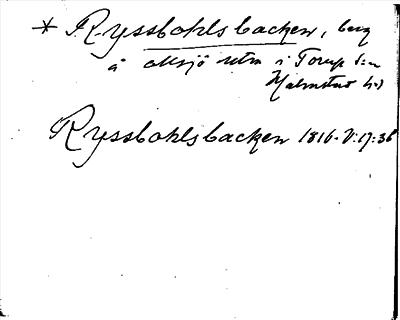 * Ryssbohlsbacken, berg
å utsjö utm i Torup sn
Halmstad hd
Ryssbohlsbacken 1816. V:17:36